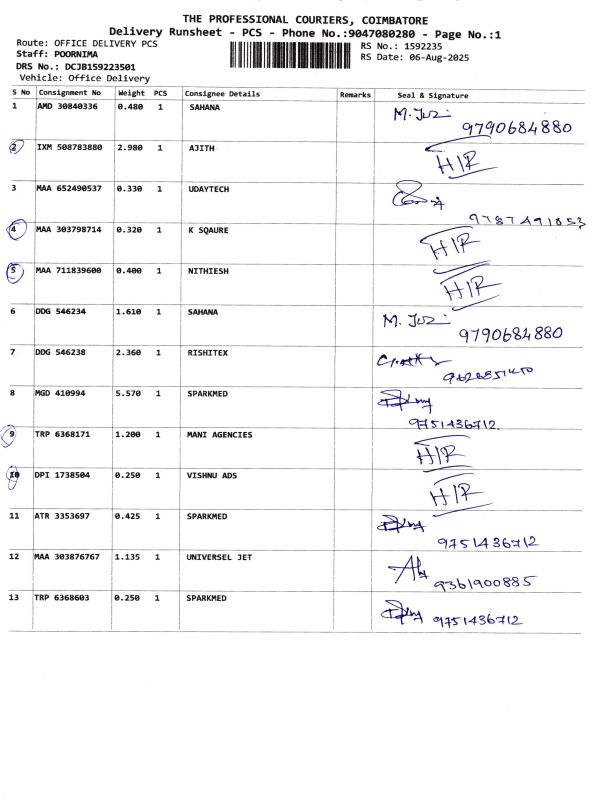 THE PROFESSIONAL COURIERS, COIMBATORE
Delivery Runsheet - PCS - Phone No.:9047080280 - Page No.:1
Route: OFFICE DELIVERY PCS
Staff: POORNIMA
DRS No.: DCJB159223501
Vehicle: Office Delivery
RS No.: 1592235
RS Date: 06-Aug-2025
S No Consignment No Weight PCS Consignee Details Remarks Seal & Signature
1 AMD 30840336 0.480 1 SAHANA 9790684880
2 IXM 508783880 2.980 1 AJITH H/R
3 MAA 652490537 0.330 1 UDAYTECH 9787491053
4 MAA 303798714 0.320 1 K SQAURE H/R
5 MAA 711839600 0.400 1 NITHIESH H/R
6 DDG 546234 1.610 1 SAHANA 9790684880
7 DDG 546238 2.360 1 RISHITEX
8 MGD 410994 5.570 1 SPARKMED 9751436712
9 TRP 6368171 1.200 1 MANI AGENCIES H/R
10 DPI 1738504 0.250 1 VISHNU ADS H/R
11 ATR 3353697 0.425 1 SPARKMED 9751436712
12 MAA 303876767 1.135 1 UNIVERSEL JET 9361900885
13 TRP 6368603 0.250 1 SPARKMED 9751436712